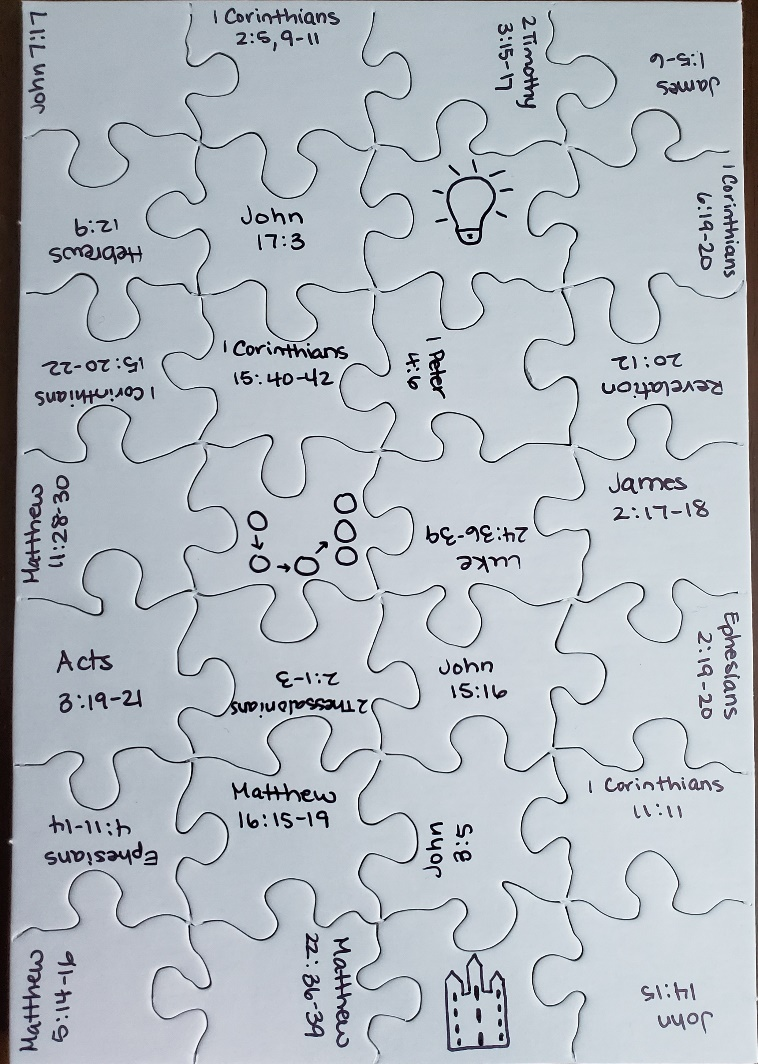 John 7:17
1 Corinthians
2:5, 9-11
2 Timothy
3:15-17
James
1:5-6
Hebrews
12:9
John
17:3
1 Corinthians
6:19-20
1 Corinthians
15:20-22
1 Corinthians
15:40-42
1 Peter
4:6
Revelation
20:12
Matthew
11:28-30
Luke
24:36-39
James
2:17-18
Acts
3:19-21
2 Thessalonians
2:1-3
John
15:16
Ephesians
2:19-20
Ephesians
4:11-14
Matthew
16:15-19
John
3:5
1 Corinthians
11:11
Matthew
5:14-16
Matthew
22:36-39
John
14:15